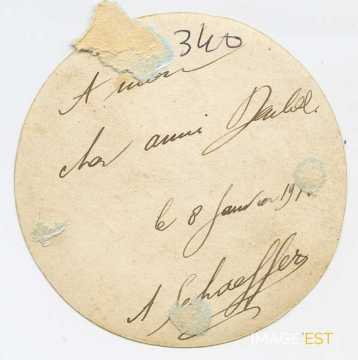 340
A mon
cher ami
le 8 Janvier 191
A Schaeffer
IMAGE'EST